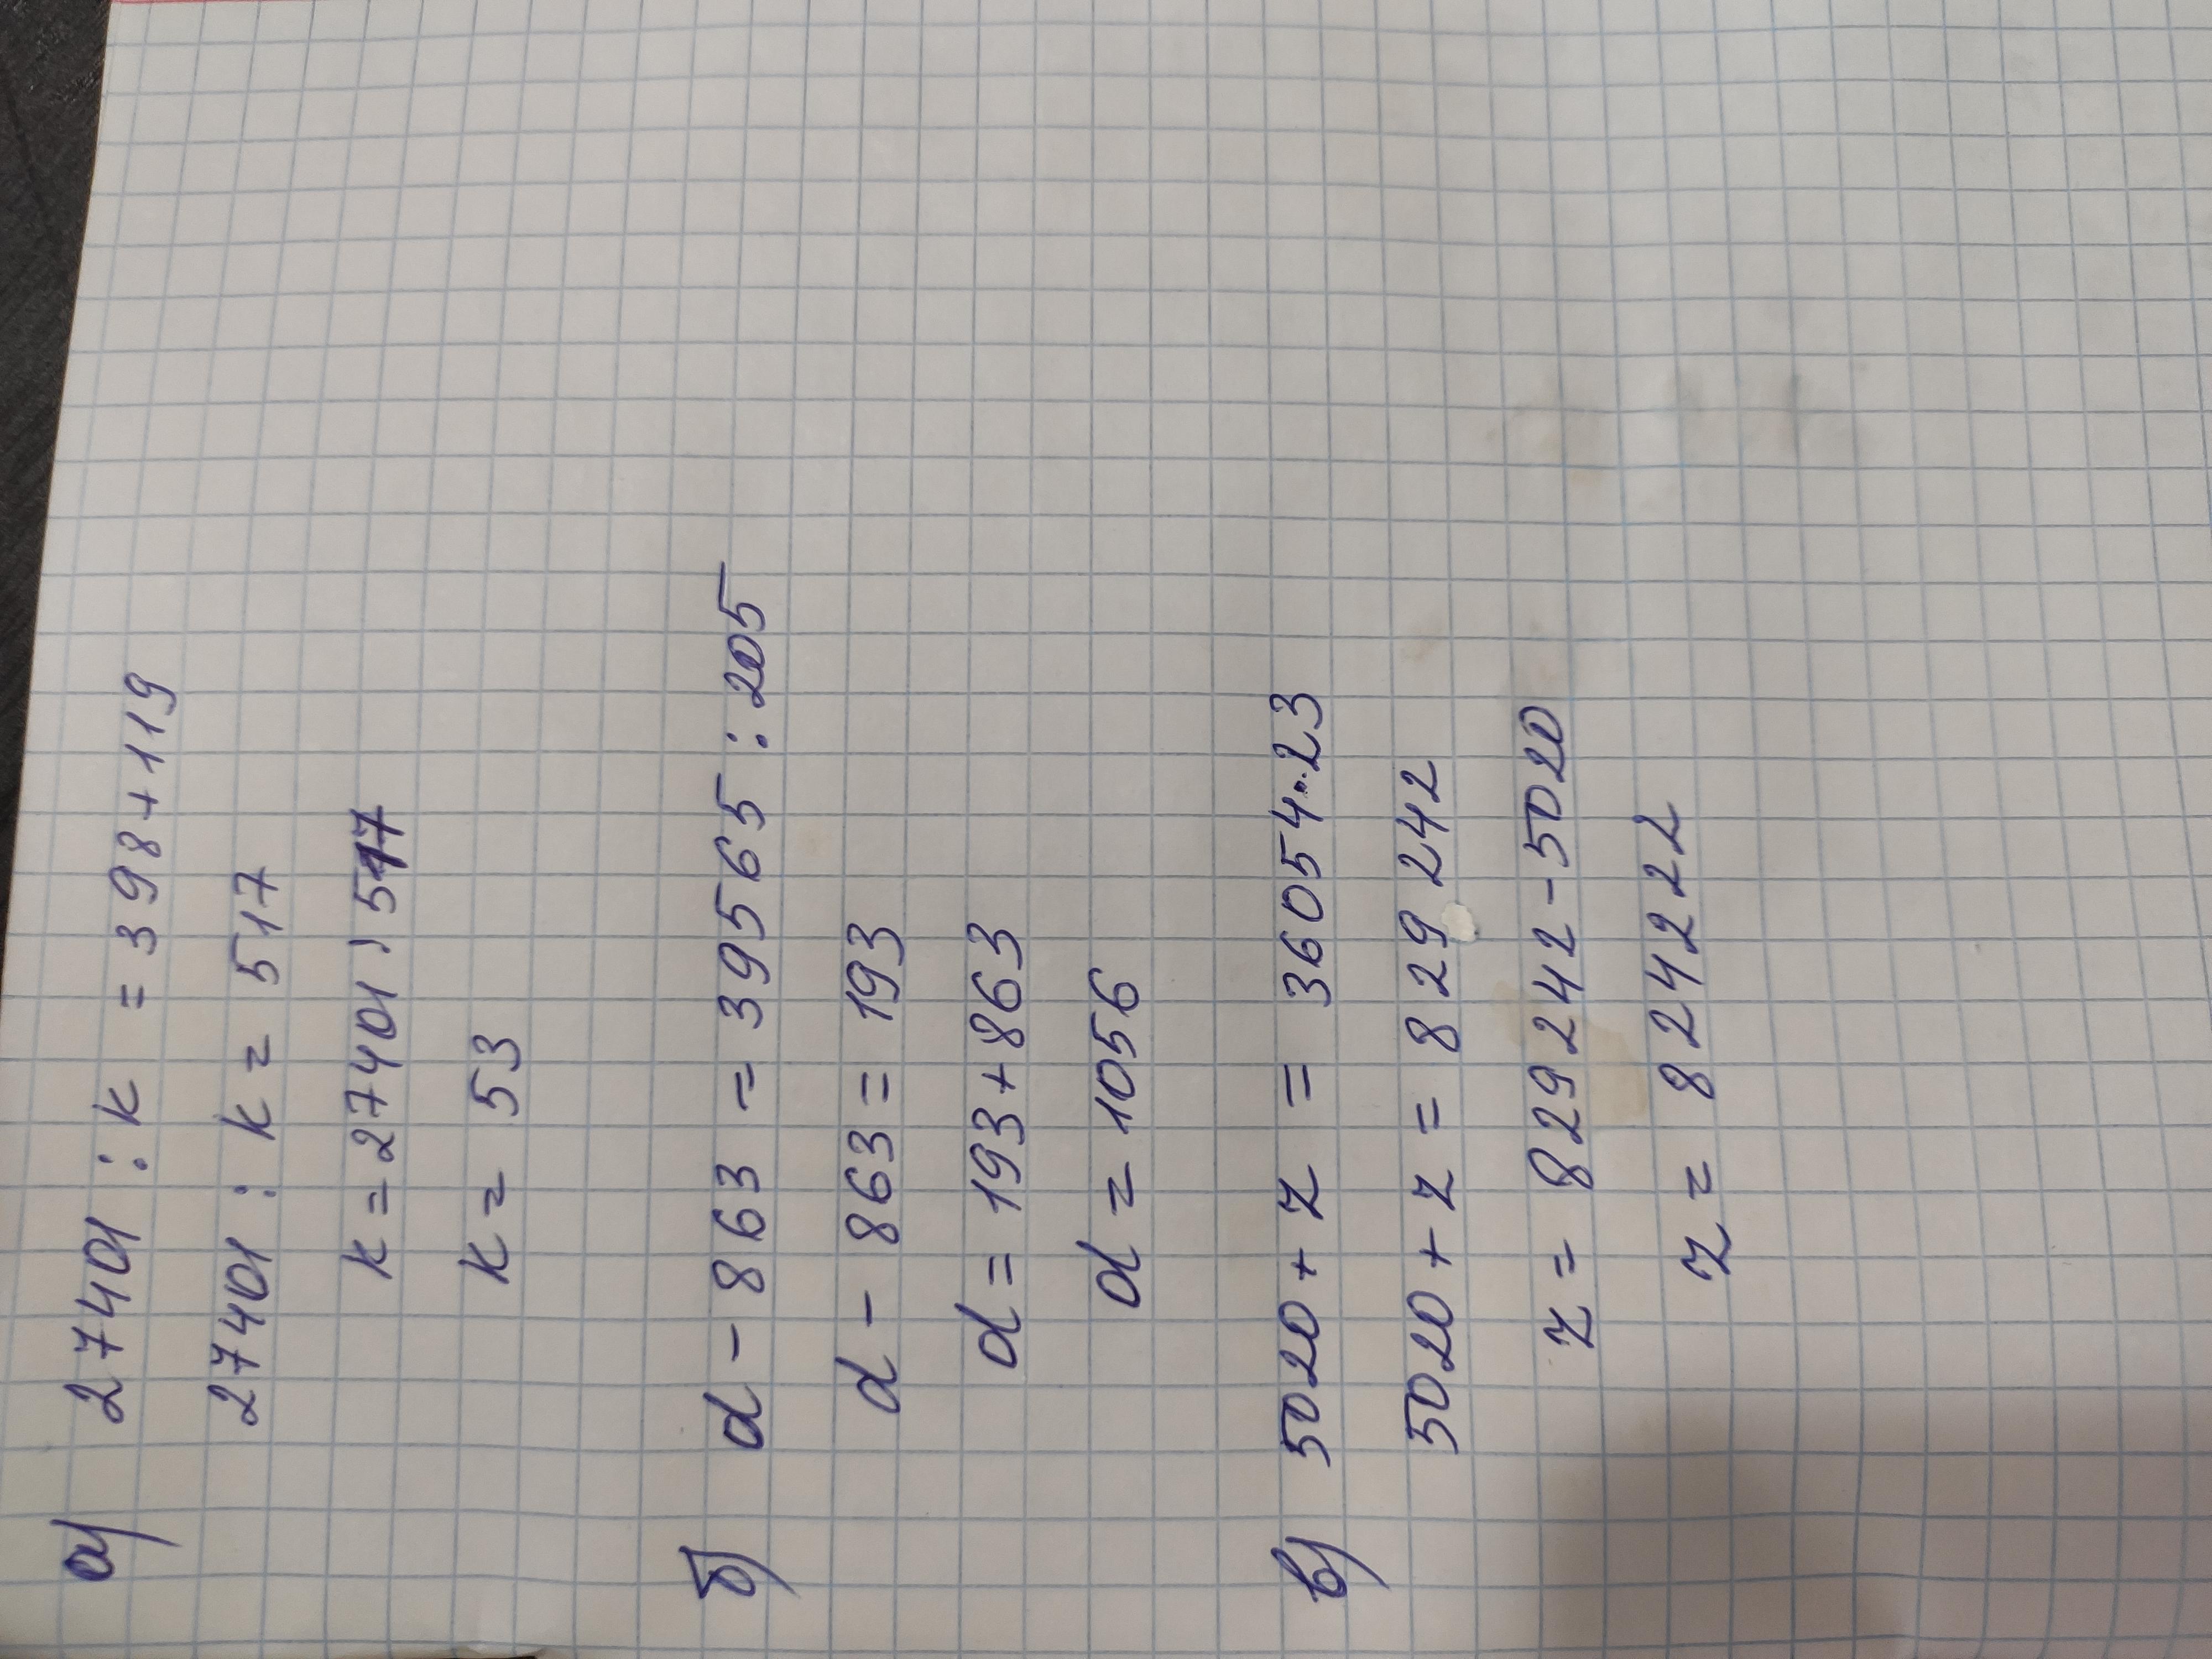 а) 27401 : k = 398+119
27401 : k = 517
k = 27401 : 517
k = 53
б) d - 863 = 39565 : 205
d - 863 = 193
d = 193+863
d = 1056
в) 5020 + z = 36054·23
5020 + z = 829242
z = 829242-5020
z = 824222